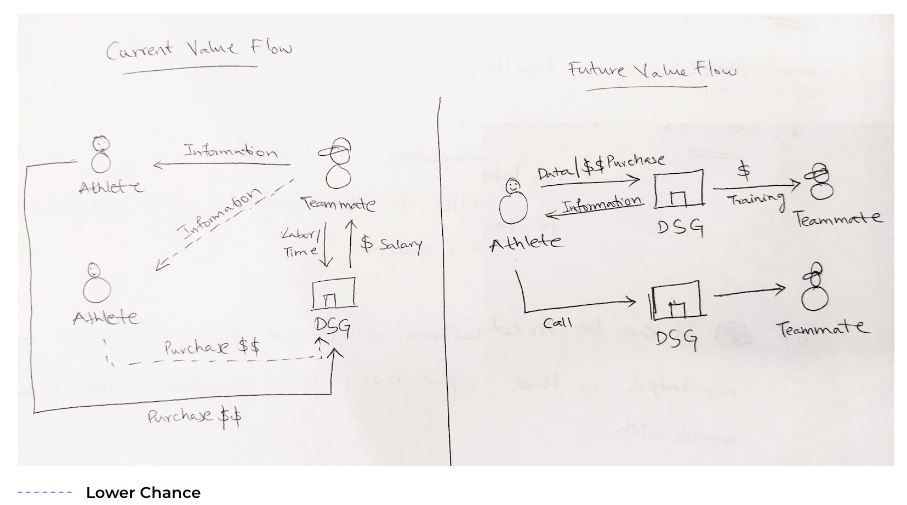 Current Value Flow
Information
Athlete
Information
Teammate
Labor/
Time
$ Salary
Athlete
DSG
Purchase $$
Purchase $$
Future Value Flow
Data/$$ Purchase
$
Information
Training
Athlete
DSG
Teammate
Call
DSG
Teammate
Lower Chance